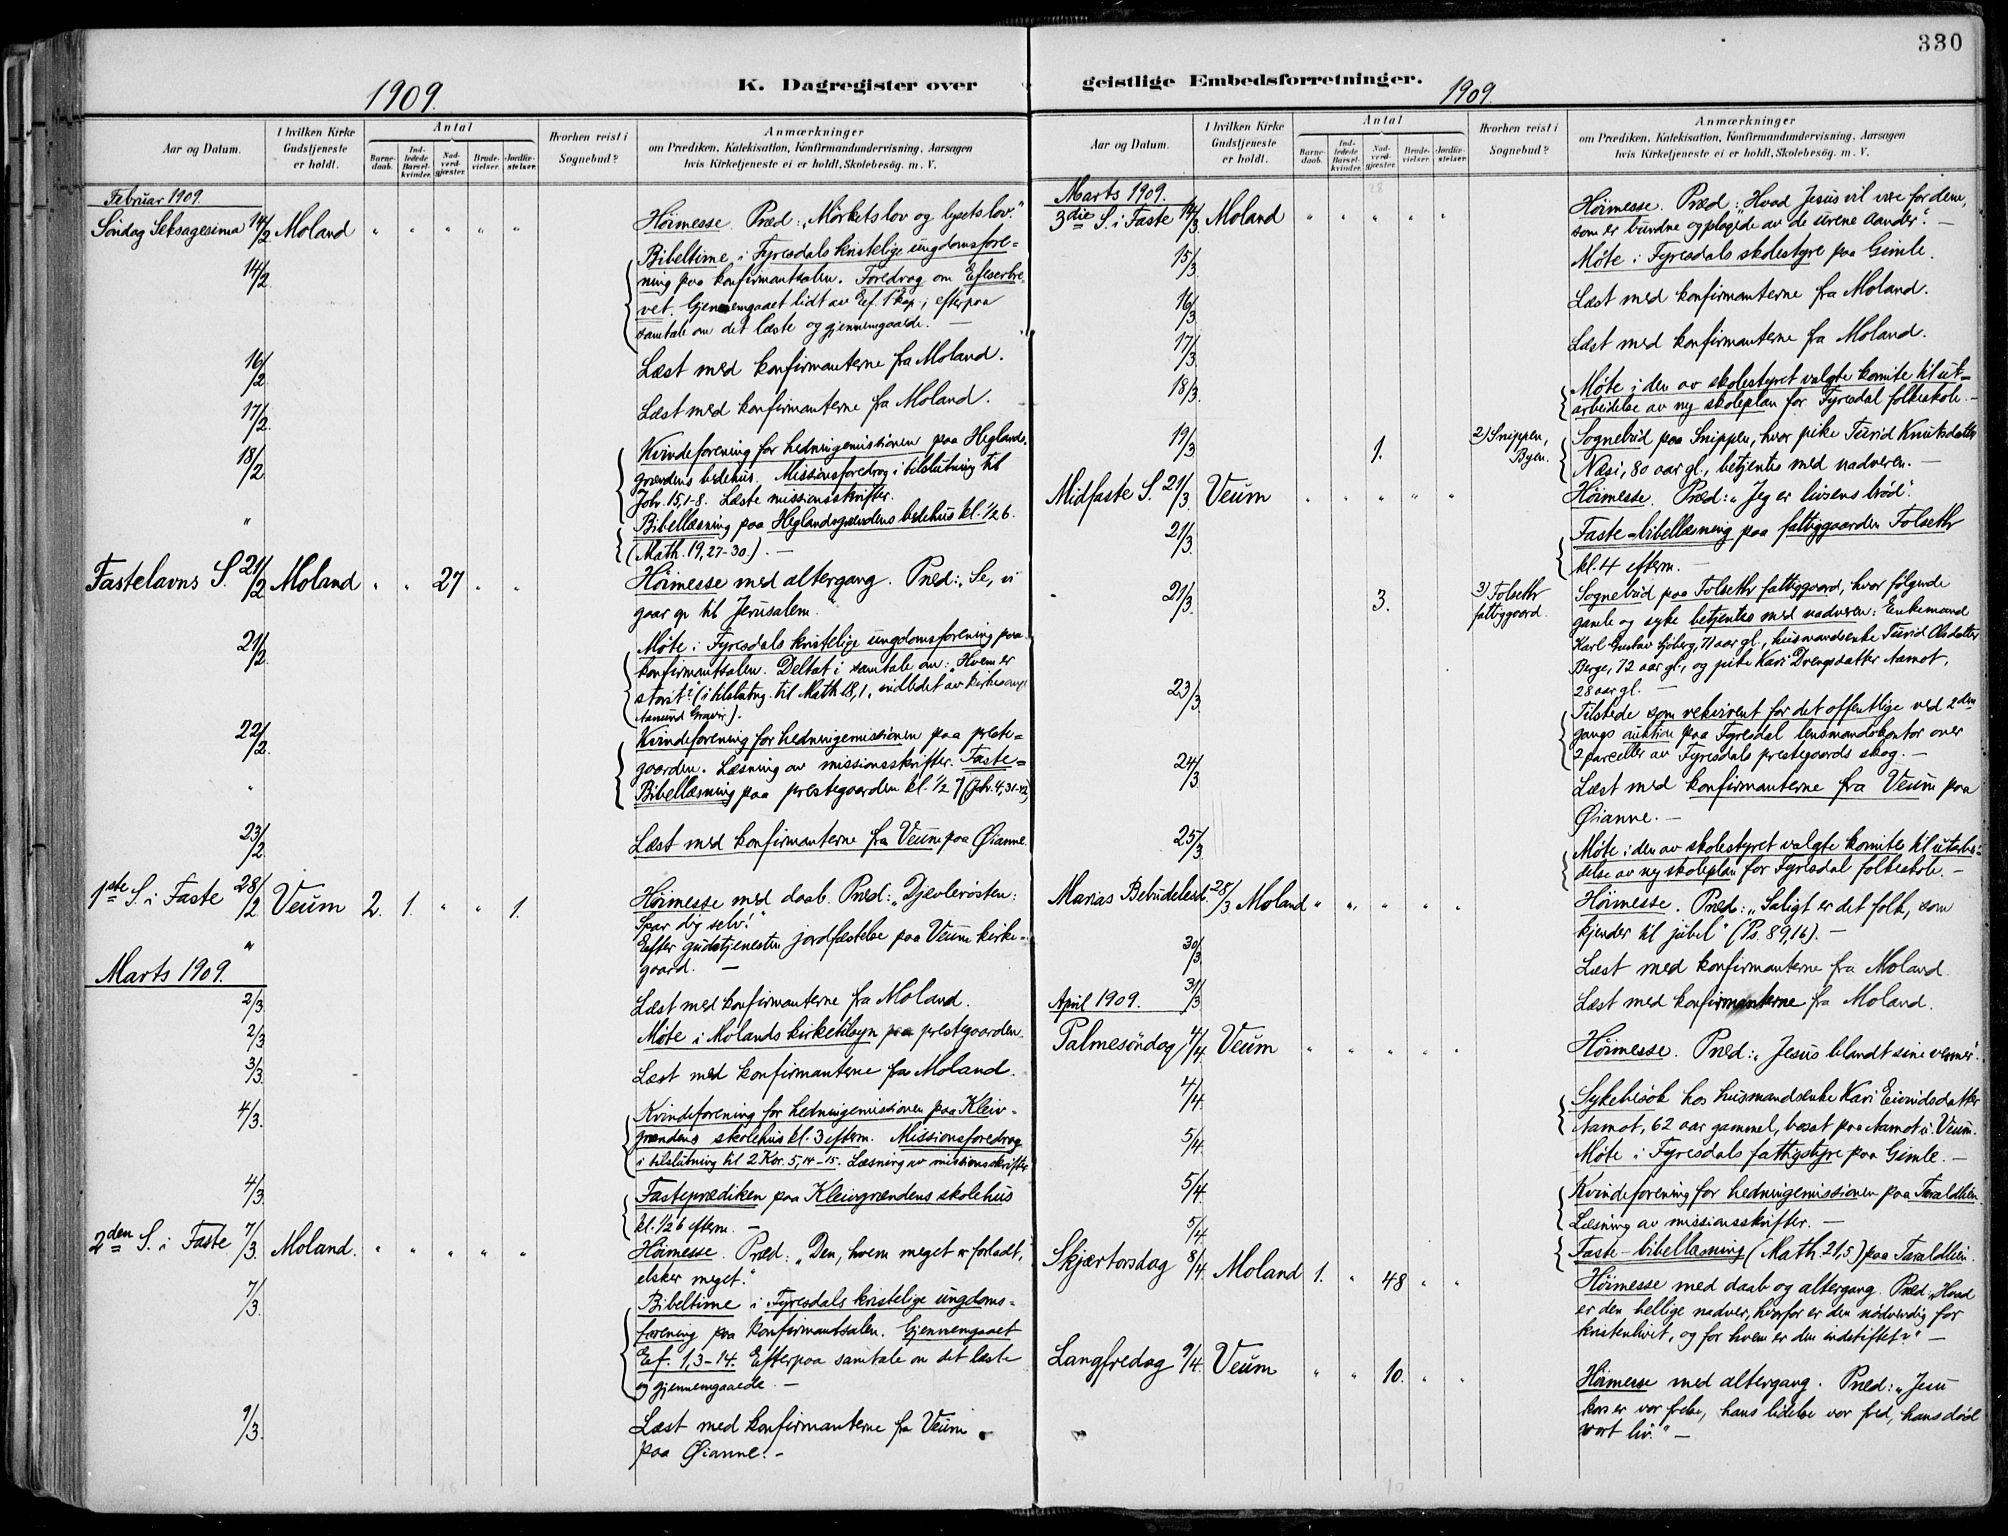 330
1909.
K. Dagregister over
geistlige Embedsforretninger.
1909.
Aar og Datum.
I hvilken Kirke
Gudstjeneste
er holdt.
Antal
Barne-
daab.
Ind-
ledede
Barsel-
kvinder.
Nad-
verd-
gjæster.
Brude-
vielser.
Jordfæ-
stelser.
Hvorhen reist i
Sognebud?
Anmærkninger
om Prædiken, Katekisation, Konfirmandundervisning, Aarsagen
hvis Kirketjeneste ei er holdt, Skolebesög. m. V.
Februar 1909.
Söndag Seksagesima 14/2 Moland " " " " " Höimesse. Præd: „Mörkets lov og lysets lov."
14/2 Bibeltime i Fyresdals kristelige ungdomsfore=
ning paa konfirmantsalen. Foredrag om Efeserbre-
vet. Gjennemgaaet lidt av Ef. 1 kap; efterpaa
samtale om det læste og gjennemgaaede. —
16/2 Læst med konfirmanterne fra Moland.
17/2 Læst med konfirmanterne fra Moland.
18/2 Kvindeforening for hedningemissionen paa Heglands-
grændens bedehus. Missionsforedrag i tilslutning til
Joh. 15,1-8. Læste missionsskrifter.
" Bibellæsning paa Heglandsgrændens bedehus kl. 1/2 6.
(Math. 19,27-30). —
Fastelavns S. 21/2 Moland " " 27 " " Höimesse med altergang. Præd: „Se, vi
gaar op til Jerusalem."
21/2 Möte i Fyresdals kristelige ungdomsforening paa
konfirmantsalen. Deltat i samtale om: Hvem er
störst? (i tilslutng. til Math 18,1, indledet av kirkesanger
Aamund Gravir).
22/2 Kvindeforening for hedningemissionen paa preste=
gaarden. Læsning av missionsskrifter. Faste=
" Bibellæsning paa prestegaarden kl. 1/2 7 (Joh. 4,31-42)
23/2 Læst med konfirmanterne fra Veum paa Øianne.
1ste S. i Faste 28/2 Veum 2. 1. " " 1. Höimesse med daab. Præd: „Djevlerösten:
Spar dig selv!"
" Eefter gudstjenesten jordfæstelse paa Veum kirke-
gaard. —
Marts 1909.
2/3 Læst med konfirmanterne fra Moland.
2/3 Möte i Molands kirketilsyn paa prestegaarden.
3/3. Læst med konfirmanterne fra Moland.
4/3. Kvindeforening for hedningemissionen paa Kleiv-
grændens skolehus kl. 3 efterm. Missionsforedrag
i tilslutning til 2 Kor. 5,14-15. Læsning av missionsskrifter
4/3. Fasteprædiken paa Kleivgrændens skolehus
kl. 1/2 6 efterm. —
2den S. i Faste 7/3. Moland. " " " " " Höimesse. Præd: „Den, hvem meget er forladt,
elsker meget."
7/3. Bibeltime i Fyresdals kristelige ungdoms-
forening paa konfirmantsalen. Gjennemgaaet
Ef. 1,3-14. Efterpaa samtale om det læste
og gjennemgaaede. —
9/3. Læst med konfirmanterne fra Veum
paa Øianne. -
Aar og Datum.
I hvilken Kirke
Gudstjeneste
er holdt.
Antal
Barne-
daab.
Ind-
ledede
Barsel-
kvinder.
Nad-
verd-
gjæster.
Brude-
vielser.
Jordfæ-
stelser.
Hvorhen reist i
Sognebud?
Anmærkninger
om Prædiken, Katekisation, Konfirmandundervisning, Aarsagen
hvis Kirketjeneste ei er holdt, Skolebesög. m. V.
Marts 1909.
3die S. i Faste 14/3. Moland " " " " " Höimesse. Præd: „Hvad Jesus vil være for dem,
som er bundne og plagede av de urene aander". —
15/3. Möte i Fyresdals skolestyre paa Gimle.
16/3. Læst med konfirmanterne fra Moland.
17/3. Læst med konfirmanterne fra Moland.
18/3. Möte i den av skolestyret valgte komite til ut=
arbeidelse av ny skoleplan for Fyresdal folkeskole. -
19/3 1. 2) Snippen, Byen. Sognebud paa Snippen, hvor pike Turid Knutsdatter
Næsi, 80 aar gl., betjentes med nadveren. —
Midfaste S. 21/3. Veum " " " " " Höimesse. Præd: „Jeg er livsens bröd".
21/3. Faste-bibellæsning paa fattiggaarden Folseth
kl. 4 efterm. —
21/3. 3. 3) Folseth fattiggaard. Sognebud paa Folseth fattiggaard, hvor fölgende
gamle og syke betjentes med nadveren: Enkemand
Karl Gustav Sjöberg, 71 aar gl., husmandsenke Turid Olsdatter
Berge, 72 aar gl., og pike Kari Drengsdatter Aamot,
28 aar gl. —
23/3. Tilstede som rekvirent for det offentlige ved 2den
gangs auktion paa Fyresdal lensmandskontor over
2 parceller av Fyresdals prestegaards skog. —
24/3 Læst med konfirmanterne fra Veum paa
Øianne. —
25/3. Möte i den av skolestyret valgte komite til utarbei=
delse av ny skoleplan for Fyresdal folkeskole. —
Marias Bebudelesd. 28/3 Moland " " " " " Höimesse. Præd: „Saligt er det folk, som
kjender til jubel" (Ps. 89,16). —
30/3. Læst med konfirmanterne fra Moland.
31/3 Læst med konfirmanterne fra Moland.
April 1909.
Palmesöndag 4/4. Veum " " " " " Höimesse. Præd: „Jesus blandt sine venner".
4/4. Sykebesök hos husmandsenke Kari Eivindsdatter
Aamot, 62 aar gammel, bosat paa Aamot i Veum.
5/4. Möte i Fyresdals fattigstyre paa Gimle. —
5/4. Kvindeforening for hedningemissionen paa Taraldlien.
Læsning av missionsskrifter. —
5/4 Faste-bibellæsning (Math. 21,5) paa Taraldlien.
Skjærtorsdag 8/4. Moland 1. " 48 " " Höimesse med daab og altergang. Præd: „Hvad
er den hellige nadver, hvorfor er den nödvendig for
kristenlivet, og for hvem er den indstiftet?" —
Langfredag 9/4. Veum " " 10. " " Höimesse med altergang. Præd: „Jesu
kors er vor frelse, hans lidelse vor fred, hans död
vort liv." —